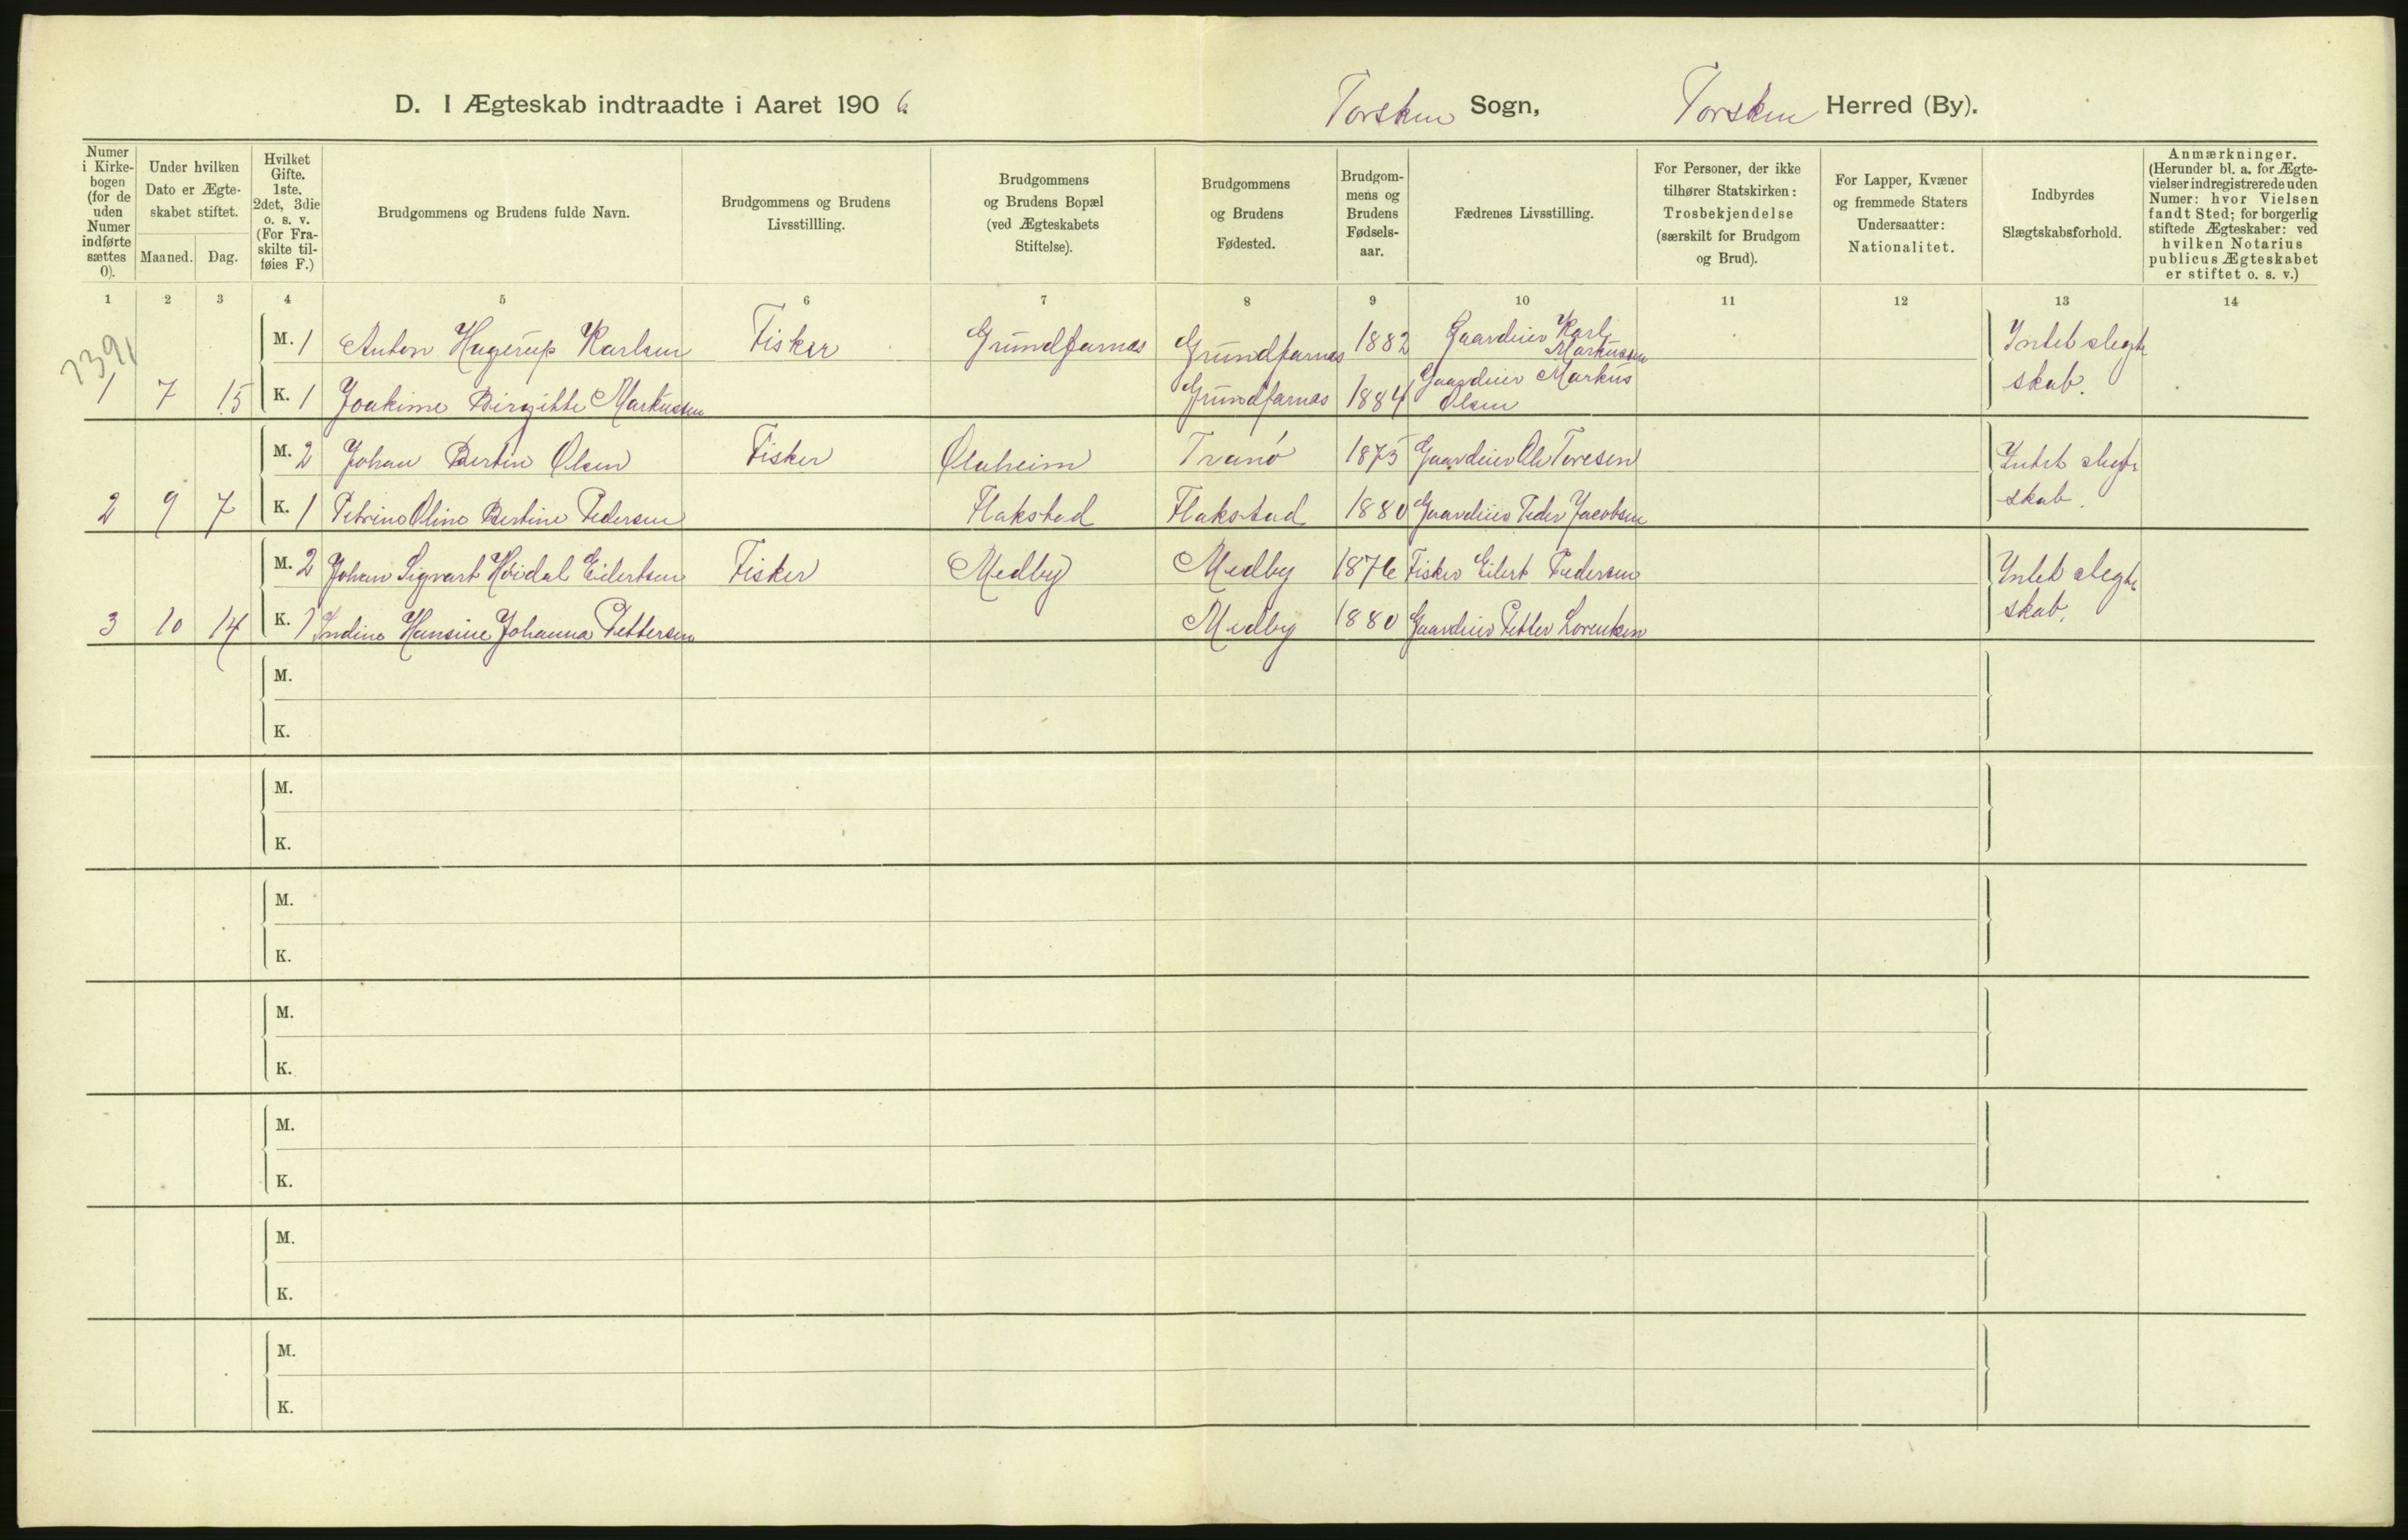 D. I Ægteskab indtraadte i Aaret 1906 Torsken Sogn, Torsken Herred (By).
Numer i Kirkebogen (for de uden Numer indførte sættes 0).
Under hvilken Dato er Ægteskabet stiftet.
Maaned. Dag.
Hvilket Gifte. 1ste, 2det, 3die o. s. v. (For Fraskilte tilføies F.)
Brudgommens og Brudens fulde Navn.
Brudgommens og Brudens Livsstillling.
Brudgommens og Brudens Bopæl (ved Ægteskabets Stiftelse).
Brudgommens og Brudens Fødested.
Brudgommens og Brudens Fødselsaar.
Fædrenes Livsstilling.
For Personer, der ikke tilhører Statskirken: Trosbekjendelse (særskilt for Brudgom og Brud).
For Lapper, Kvæner og fremmede Staters Undersaatter: Nationalitet.
Indbyrdes Slægtskabsforhold.
Anmærkninger. (Herunder bl. a. for Ægtevielser indregistrerede uden Numer: hvor Vielsen fandt Sted; for borgerlig stiftede Ægteskaber: ved hvilken Notarius publicus Ægteskabet er stiftet o. s. v.)
1 2 3 4 5 6 7 8 9 10 11 12 13 14
M. 1 Anton Hagerup Karlsen Fisker Grundfarnas Grundfarnas 1882 Gaardeier Karl Markussen Intet slegtskab.
1 7 15 K. 1 Joakime Birgitte Markussen Grundfarnas 1884 Gaardeier Markus Olsen
M. 2 Johan Bertin Olsen Fisker Olaheim Tranø 1875 Gaardeier Ole Toresen Intet slegtskab.
2 9 7 K. 1 Petrine Oline Bertine Pedersen Flakstad Flakstad 1880 Gaardeier Peder Jacobsen
M. 2 Johan Sigvart Høidal Eilertsen Fisker Medby Medby 1876 Fisker Eilert Pedersen Intet slegtskab.
3 10 14 K. 1 Indine Hansine Johanna Pettersen Medby 1880 Gaardeier Petter Lorentsen
M.
K.
M.
K.
M.
K.
M.
K.
M.
K.
M.
K.
M.
K.